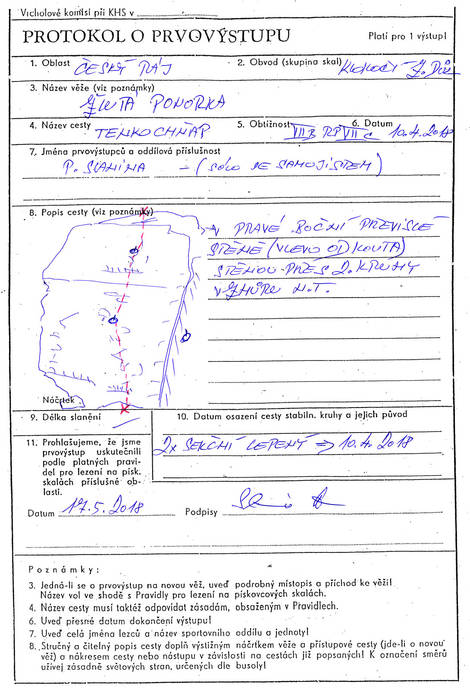 Vrcholové komisi při KHS v
PROTOKOL O PRVOVÝSTUPU Platí pro 1 výstup!
1. Oblast ČESKÝ RÁJ 2. Obvod (skupina skal) KLOKOČÍ
3. Název věže (viz poznámky)
ŽLUTÁ PONORKA
4. Název cesty TENKOCHŇAP 5. Obtížnost VIIB RP VIIc 6. Datum 10.4.2018
7. Jména prvovýstupců a oddílová příslušnost
P. SLANINA - (SÓLO SE SAMOJISTEM)
8. Popis cesty (viz poznámky) V PRAVÉ BOČNÍ PŘEVISLÉ
STĚNĚ (VLEVO OD KOUTA)
STĚNOU PŘES 2. KRUHY
VZHŮRU N.T.
Náčrtek
9. Délka slanění 10. Datum osazení cesty stabiln. kruhy a jejich původ
11. Prohlašujeme, že jsme
prvovýstup uskutečnili
podle platných pravi-
del pro lezení na písk.
skalách příslušné ob-
lasti.
2x SEKČNÍ LEPENÝ → 10.4.2018
Datum 17.5.2018 Podpisy
Poznámky:
3. Jedná-li se o prvovýstup na novou věž, uveď podrobný místopis a příchod ke věži!
Název vol ve shodě s Pravidly pro lezení na pískovcových skalách.
4. Název cesty musí taktéž odpovídat zásadám, obsaženým v Pravidlech.
6. Uveď přesné datum dokončení výstupu!
7. Uveď celá jména lezců a název sportovního oddílu a jednoty!
8. Stručný a čitelný popis cesty doplň výstižným náčrtkem věže a přístupové cesty (jde-li o novou
věž) a nákresem cesty nebo nástupu v závislosti na cestách již popsaných! K označení směru
užívej zásadně světových stran, určených dle busoly!